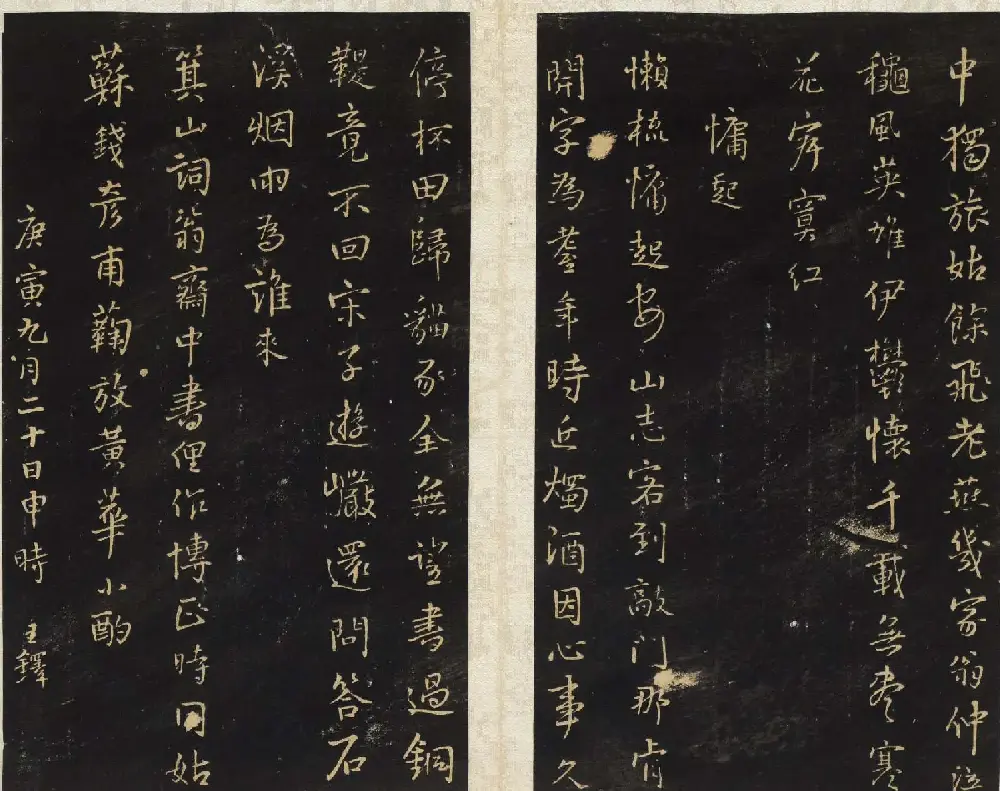 中獨旅姑餘飛老燕幾家翁仲泣
穐風英雄伊鬱懷千載無盡寒
花寂寞紅
慵起
懶梳慵起出山志客到敲門那肯
開字為耋年時近燭酒因心事久
停杯田歸貓豕全無證書過銅
鞮竟不回宋子遊巖還問答石
溪烟雨為誰來
箕山詞翁齋中書俚作博正時同姑
蘇錢彥甫蘜放黃華小酌
庚寅九月二十日申時 王鐸